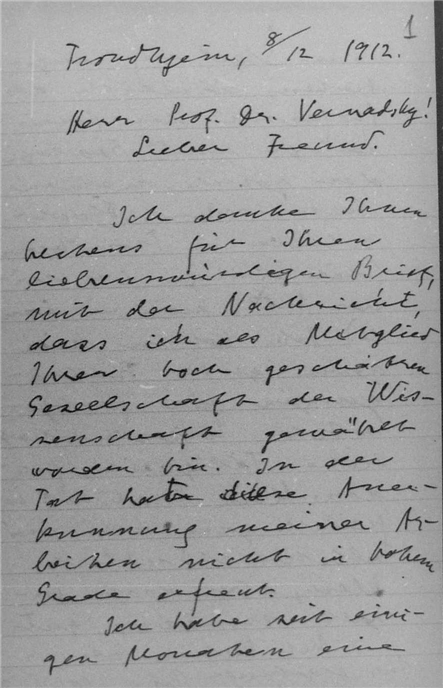 1
Trondhjem, 8/12 1912.
Herr Prof. Dr. Vernadsky!
Lieber Freund.
Ich danke Ihnen
bestens für Ihren
liebenswürdigen Brief,
mit der Nachricht,
dass ich als Mitglied
Ihrer hoch geschätzen
Gesellschaft der Wis-
senschaft gewählt
worden bin. In der
Tat hat diese Aner-
kennung meiner Ar-
beiten nicht in hohem
Grade erfreut.
Ich habe seit eini-
gen Monathen eine